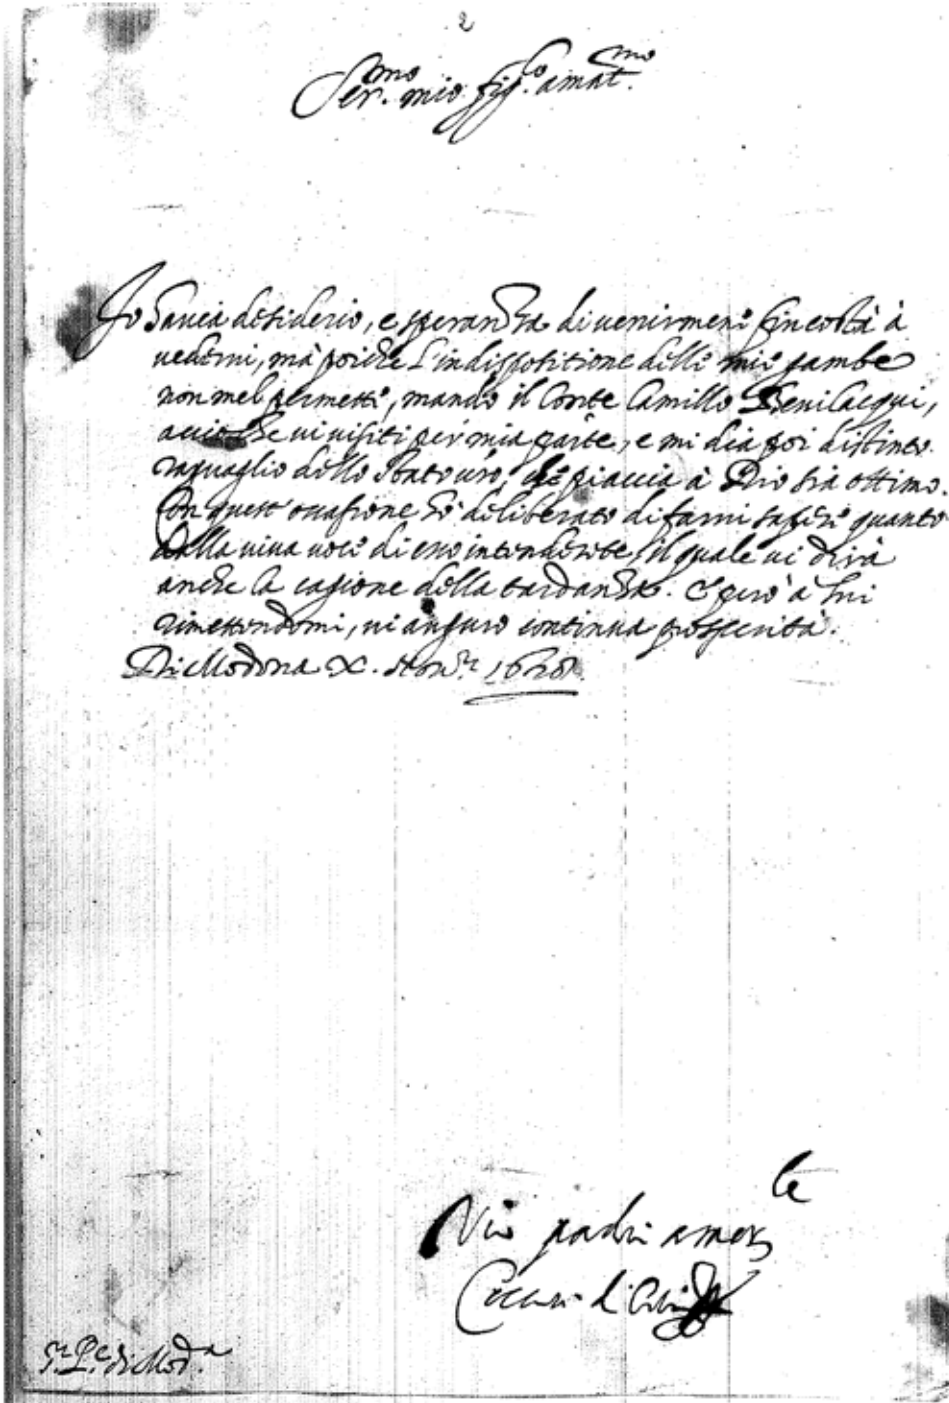 2
Ser.mo mio fig.lo amat.mo
Io havea desiderio, e speranza di venirmene fin costà à
vedervi, mà poiche l'indispositione delle mie gambe
non mel permette, mando il Conte Camillo Bevilacqui,
acciò che vi visiti per mia parte, e mi dia poi distinto
raguaglio dello stato vr̃o, che piaccia à Dio sia ottimo.
Con quest'occasione hò deliberato di farvi sapere quanto
dalla viva voce di esso intenderete, il quale vi dirà
anche la cagione della tardanza. E però à lui
rimettendomi, vi auguro continua prosperità.
Di Modona X.
Vr̃o padre amor.
le
Cesare d'
S.r P.e di Mod.a